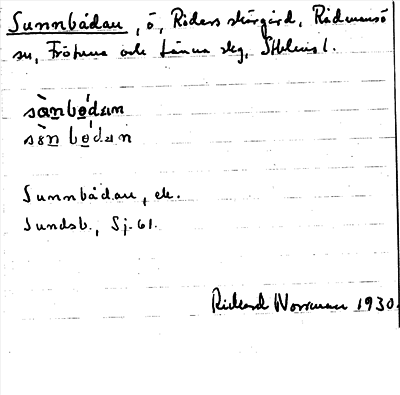 Sunnbådan, ö, Riders skärgård, Rådmansö
sn, Frötuna och Länna skg, Sthlms l.
sànbǫ́dan
sən bǫ́dan
Sunnbådan, ek.
Sundsb., Sj. 61.
Rickard Norrman 1930